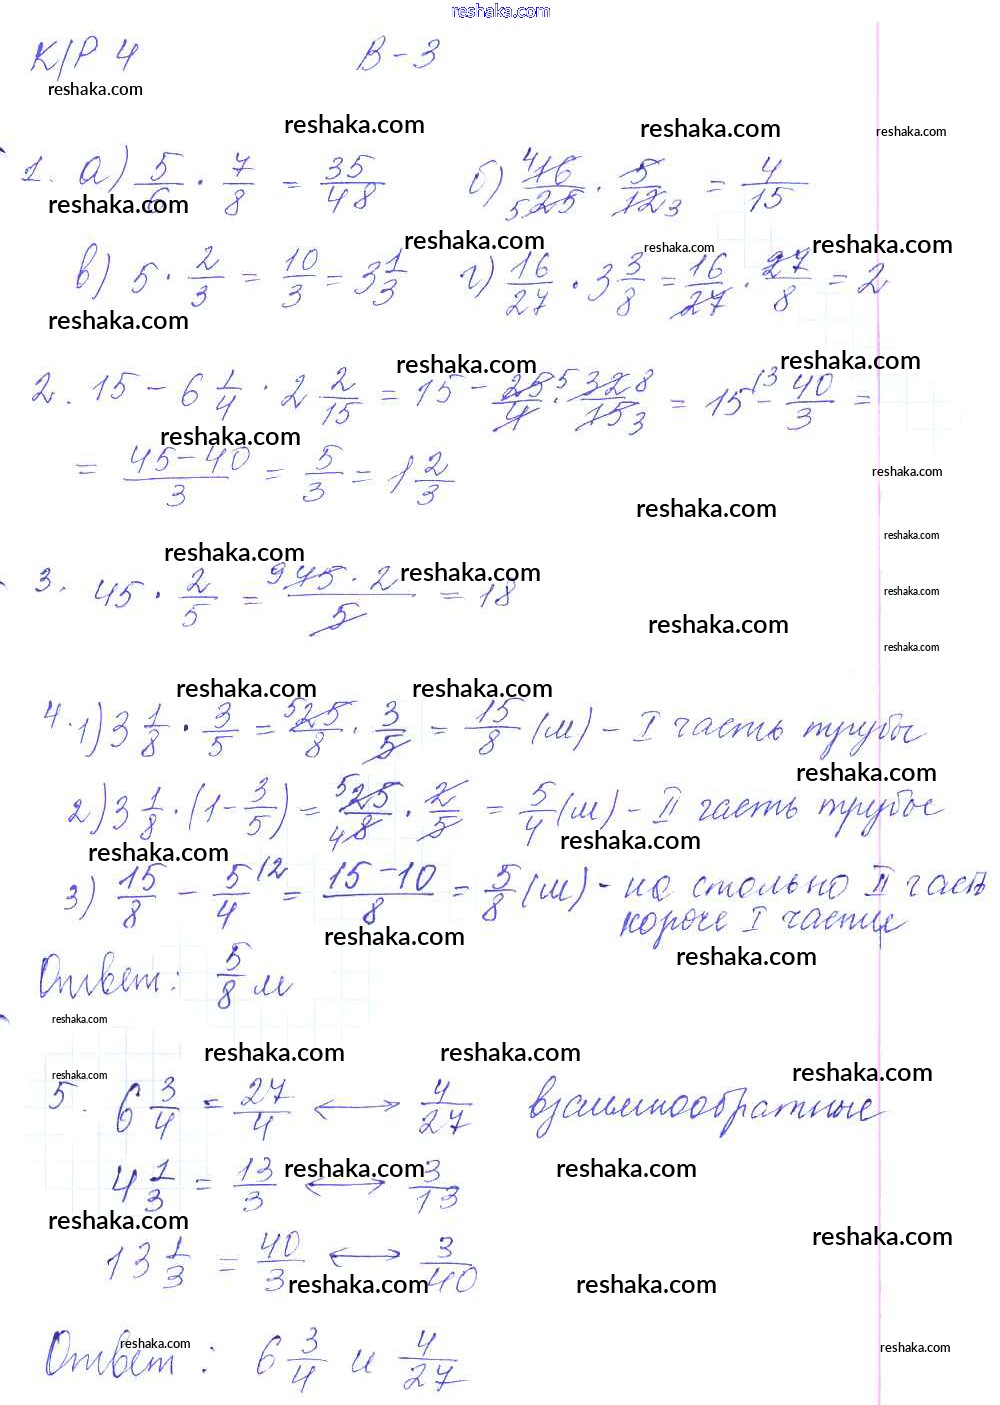 reshaka.com
К/Р 4 В-3
reshaka.com
reshaka.com reshaka.com reshaka.com
1. а) 5/6 · 7/8 = 35/48 б) 4 16/25 5 · 5/12 3 = 4/15
reshaka.com
reshaka.com reshaka.com reshaka.com
в) 5 · 2/3 = 10/3 = 3 1/3 г) 16/27 · 3 3/8 = 16/27 · 27/8 = 2
reshaka.com
reshaka.com reshaka.com
2. 15 - 6 1/4 · 2 2/15 = 15 - 25/4 5 · 32/15 8 3 = 15 - 13 40/3 =
reshaka.com
= 45-40/3 = 5/3 = 1 2/3
reshaka.com
reshaka.com
reshaka.com
reshaka.com reshaka.com
3. 45 · 2/5 = 9 45 · 2/5 = 18
reshaka.com
reshaka.com
reshaka.com
reshaka.com reshaka.com
4. 1) 3 1/8 · 3/5 = 5 25/8 · 3/5 = 15/8 (м) - I часть трубы
reshaka.com
2) 3 1/8 · (1 - 3/5) = 5 25/8 4 · 2/5 = 5/4 (м) - II часть трубы
reshaka.com reshaka.com
3) 15/8 - 5/4 (2 = 15-10/8 = 5/8 (м) - на столько II часть
короче I части
reshaka.com reshaka.com
Ответ: 5/8 м
reshaka.com
reshaka.com reshaka.com
reshaka.com reshaka.com
5. 6 3/4 = 27/4 ⟷ 4/27 взаимнообратные
reshaka.com reshaka.com
4 1/3 = 13/3 ⟷ 3/13
reshaka.com reshaka.com
13 1/3 = 40/3 ⟷ 3/40
reshaka.com reshaka.com
reshaka.com reshaka.com
Ответ: 6 3/4 и 4/27